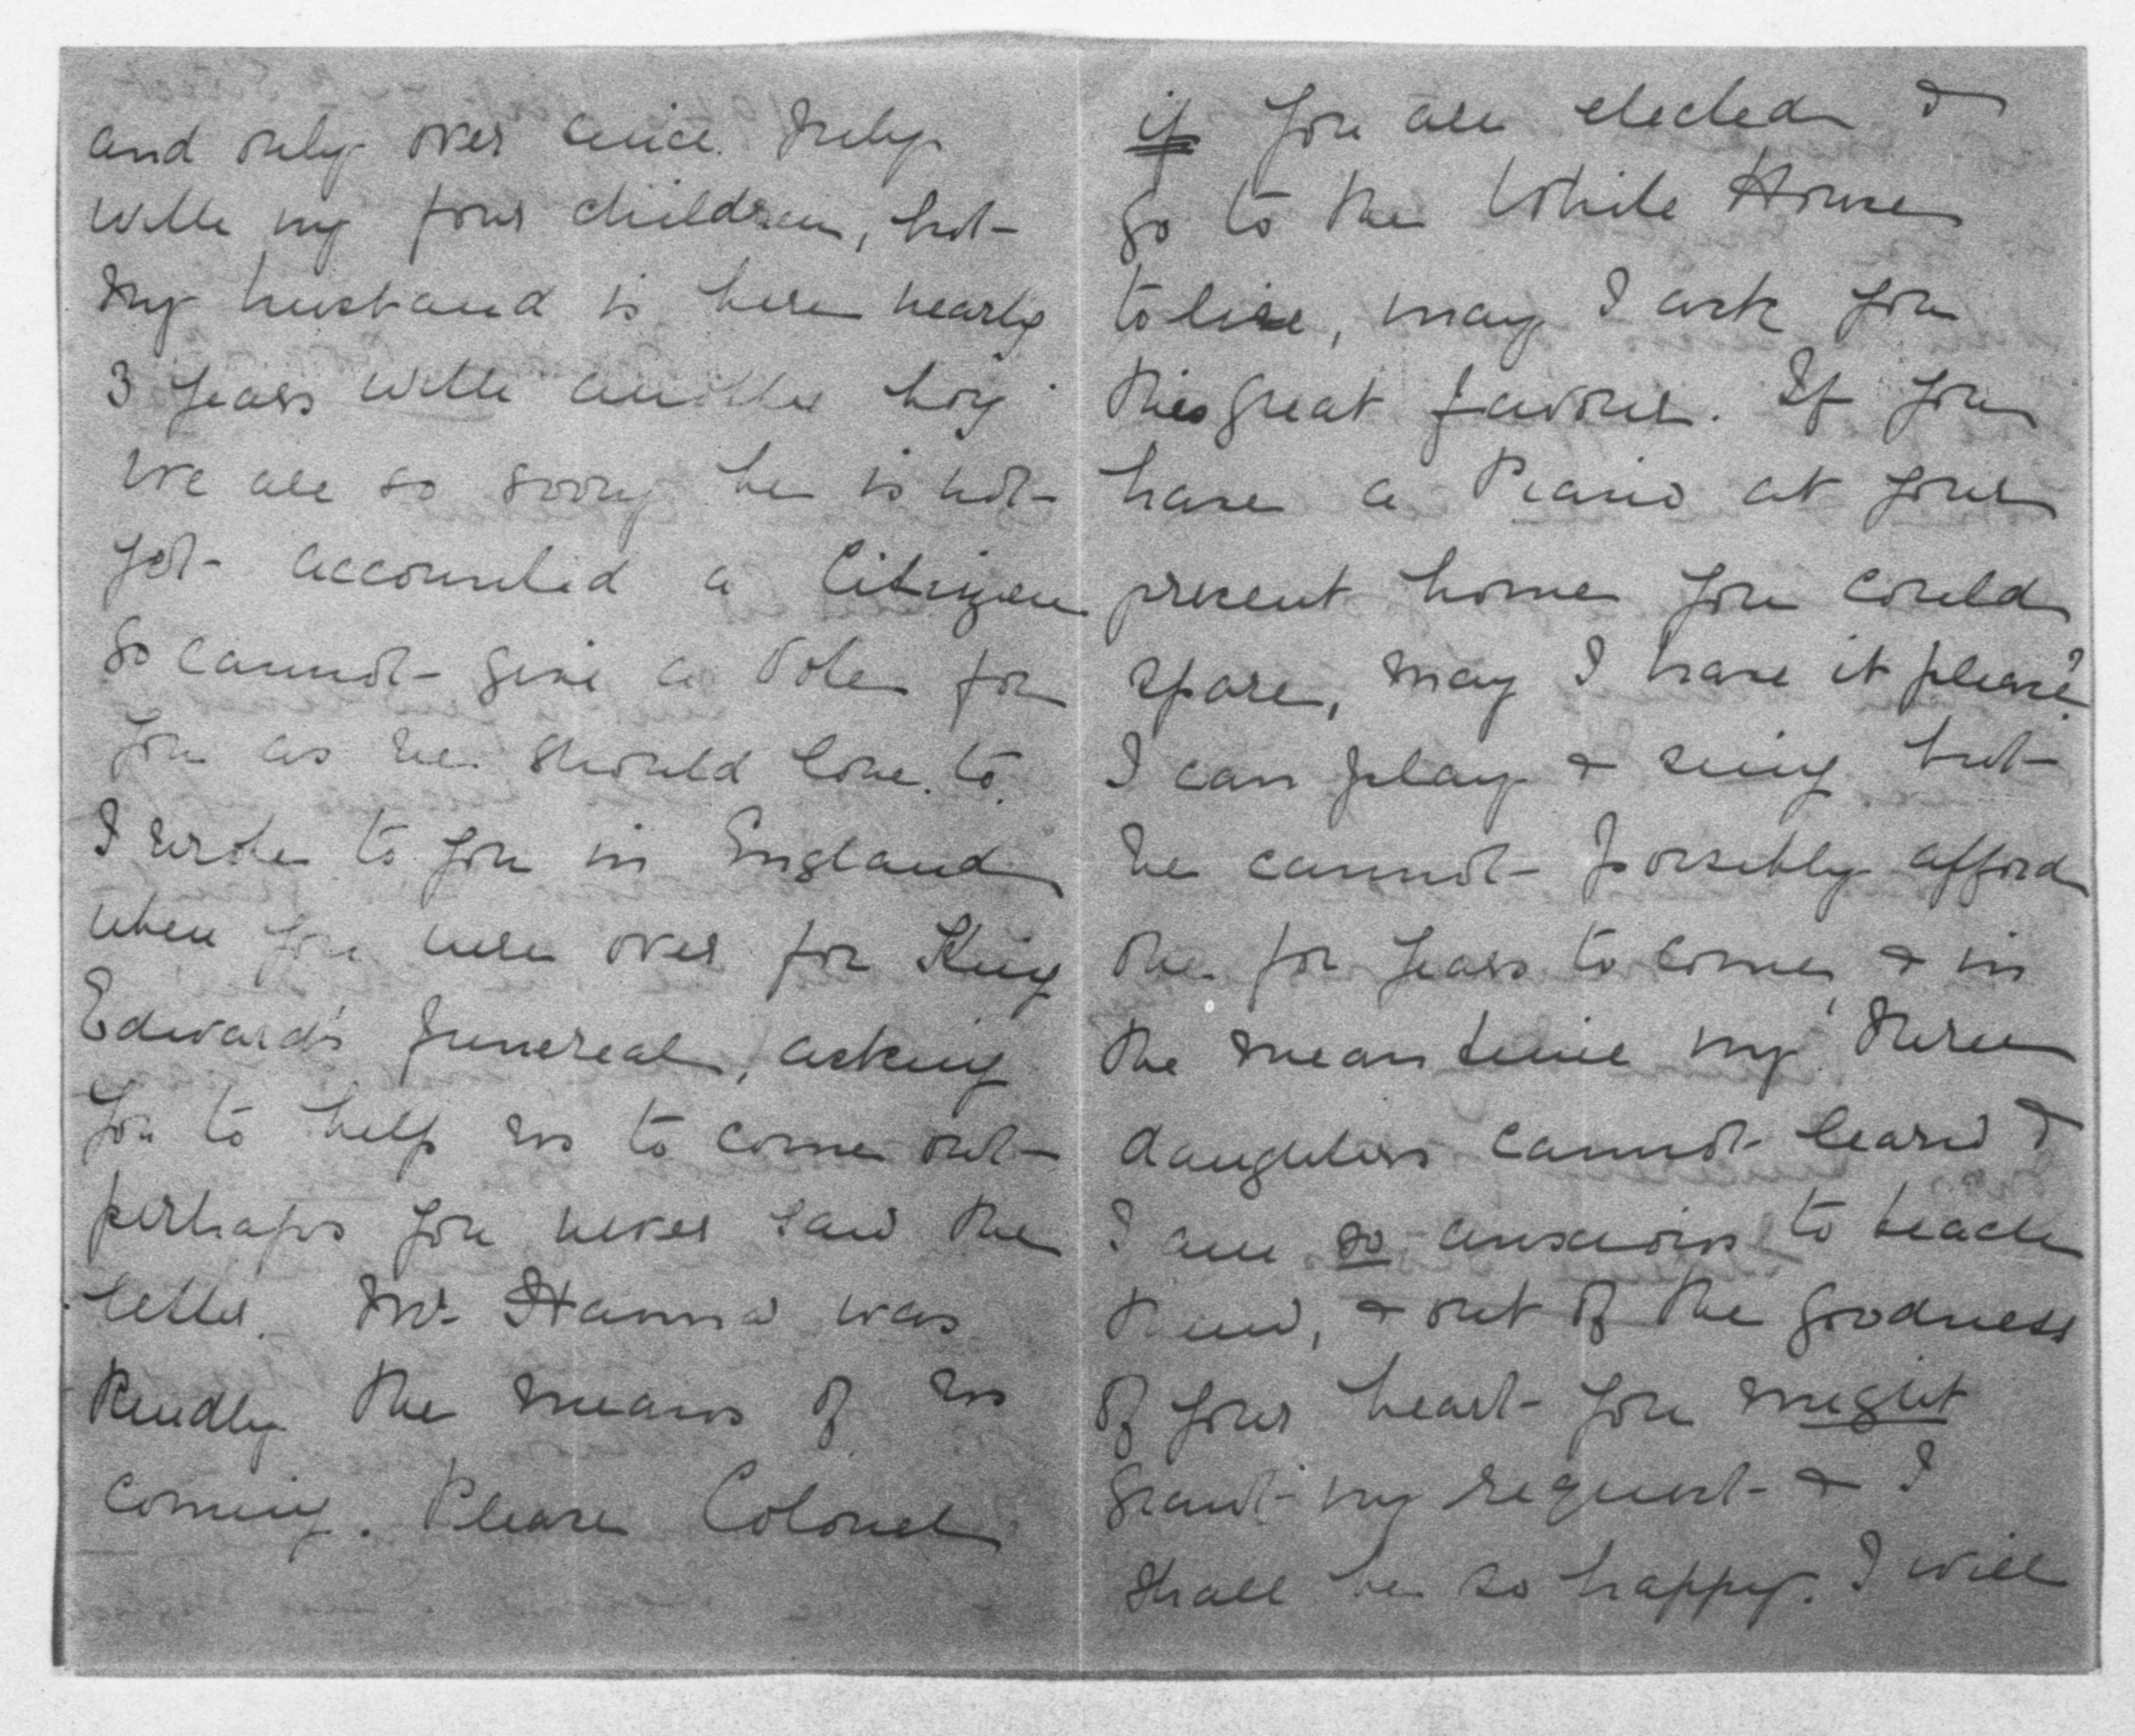 and only over since July
with my four children, but
my husband is here nearly
3 years with another boy
We are so sorry he is not
yet accounted a Citizen
so cannot give a Vote for
you as we should love to.
I wrote to you in England
when you were over for King
Edward's funereal, asking
you to help us to come out
perhaps you never saw the
letter. Mr. Hanna was
kindly the means of us
coming. Please Colonel
if you are elected &
go to the White House
to live, may I ask you
this great favour. If you
have a Piano at your
present home you could
spare, may I have it please?
I can play & sing but
we cannot possibly afford
one for years to come, & in
the meantime my three
daughters cannot learn &
I am so anxious to teach
them, & out of the goodness
of your heart you might
grant my request & I
shall be so happy. I will